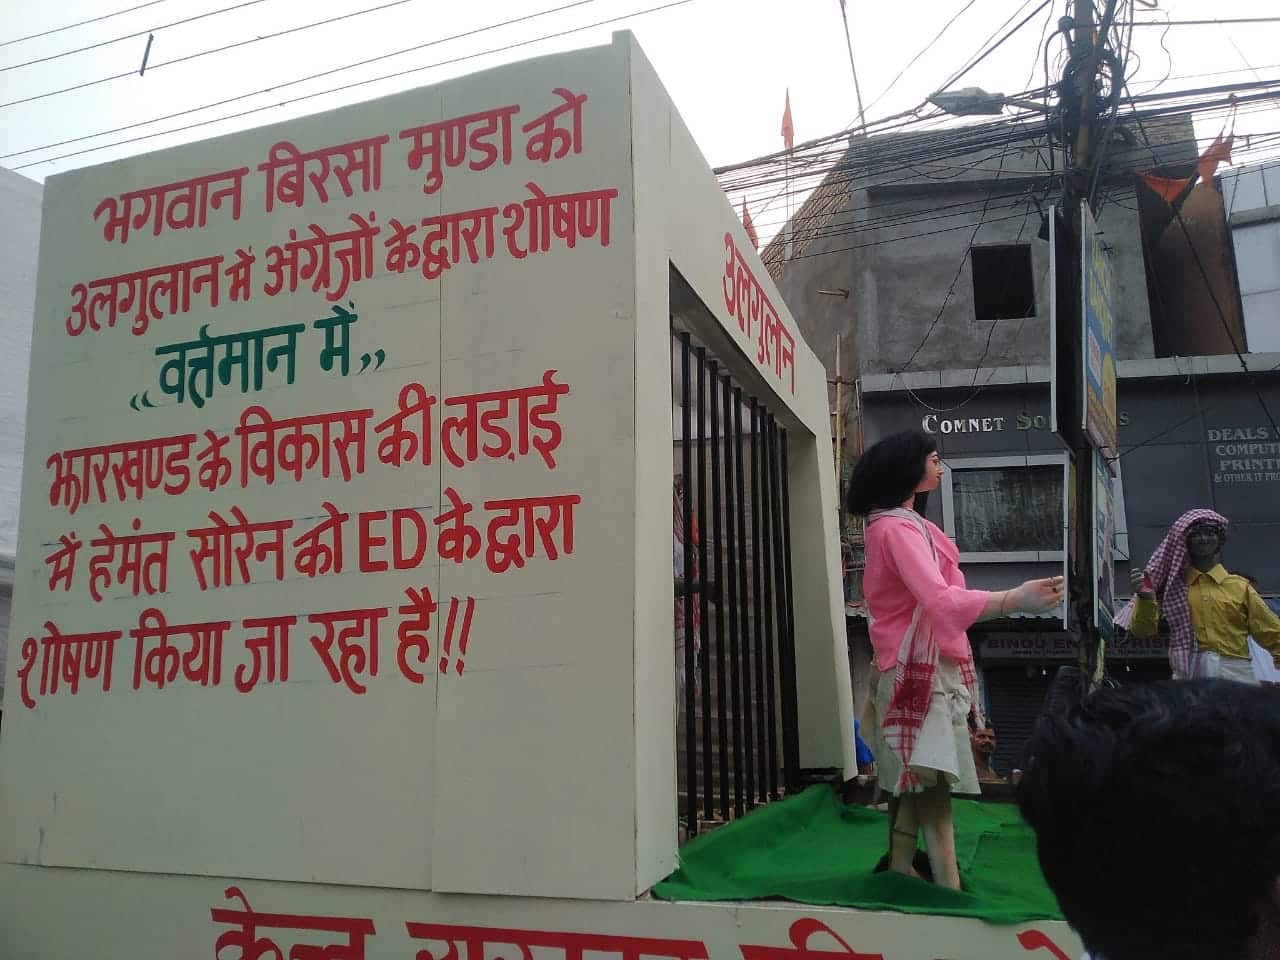 भगवान बिरसा मुण्डा को
उलगुलान में अंग्रेजों के द्वारा शोषण
,,वर्त्तमान में,,
झारखण्ड के विकास की लड़ाई
में हेमंत सोरेन को ED के द्वारा
शोषण किया जा रहा है!!
उलगुलान
COMNET
DEALS
COMPUT
PRINT
& OTHER IT PRO
BINDU